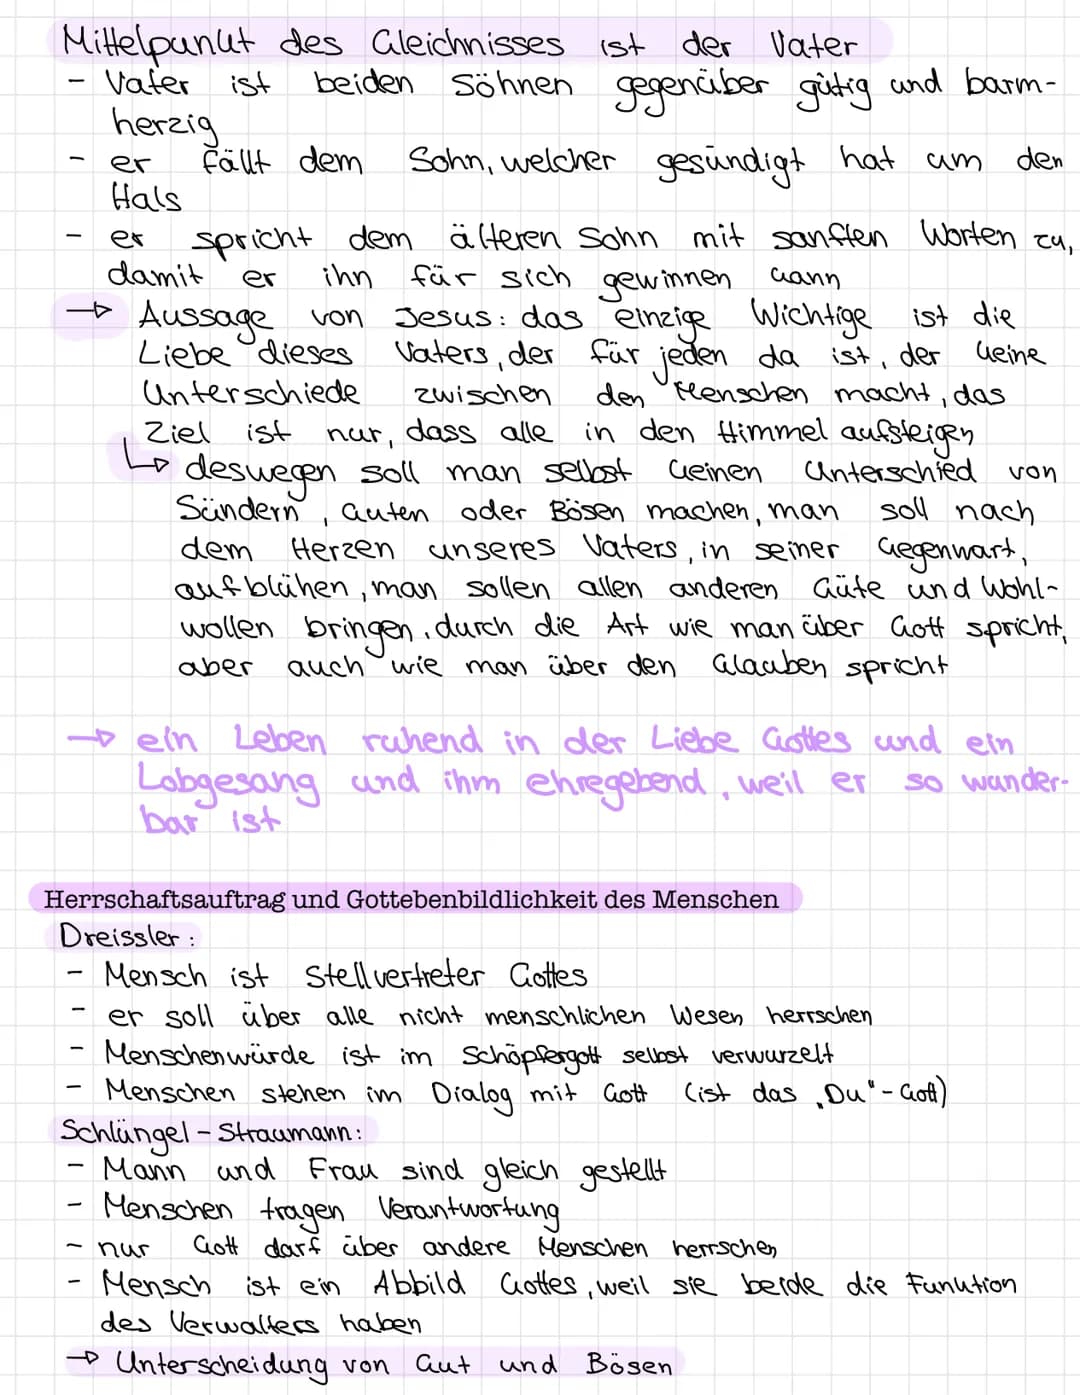 Mittelpunkt des Gleichnisses ist der Vater
- Vater ist beiden Söhnen gegenüber gütig und barm-
herzig
- er fällt dem Sohn, welcher gesündigt hat um den
Hals
- er spricht dem älteren Sohn mit sanften Worten zu,
damit er ihn für sich gewinnen kann
→ Aussage von Jesus: das einzige Wichtige ist die
Liebe dieses Vaters, der für jeden da ist, der keine
Unterschiede zwischen den Menschen macht, das
Ziel ist nur, dass alle in den Himmel aufsteigen
↳ deswegen soll man selbst keinen Unterschied von
Sündern, Guten oder Bösen machen, man soll nach
dem Herzen unseres Vaters, in seiner Gegenwart,
aufblühen, man sollen allen anderen Güte und Wohl-
wollen bringen, durch die Art wie man über Gott spricht,
aber auch wie man über den Glauben spricht
→ ein Leben ruhend in der Liebe Gottes und ein
Lobgesang und ihm ehregebend, weil er so wunder-
bar ist
Herrschaftsauftrag und Gottebenbildlichkeit des Menschen
Dreissler:
- Mensch ist Stellvertreter Gottes
- er soll über alle nicht menschlichen Wesen herrschen
- Menschenwürde ist im Schöpfergott selbst verwurzelt
- Menschen stehen im Dialog mit Gott (ist das „Du"-Gott)
Schlüngel-Straumann:
- Mann und Frau sind gleich gestellt
- Menschen tragen Verantwortung
- nur Gott darf über andere Menschen herrschen
- Mensch ist ein Abbild Gottes, weil sie beide die Funktion
des Verwalters haben
→ Unterscheidung von Gut und Bösen